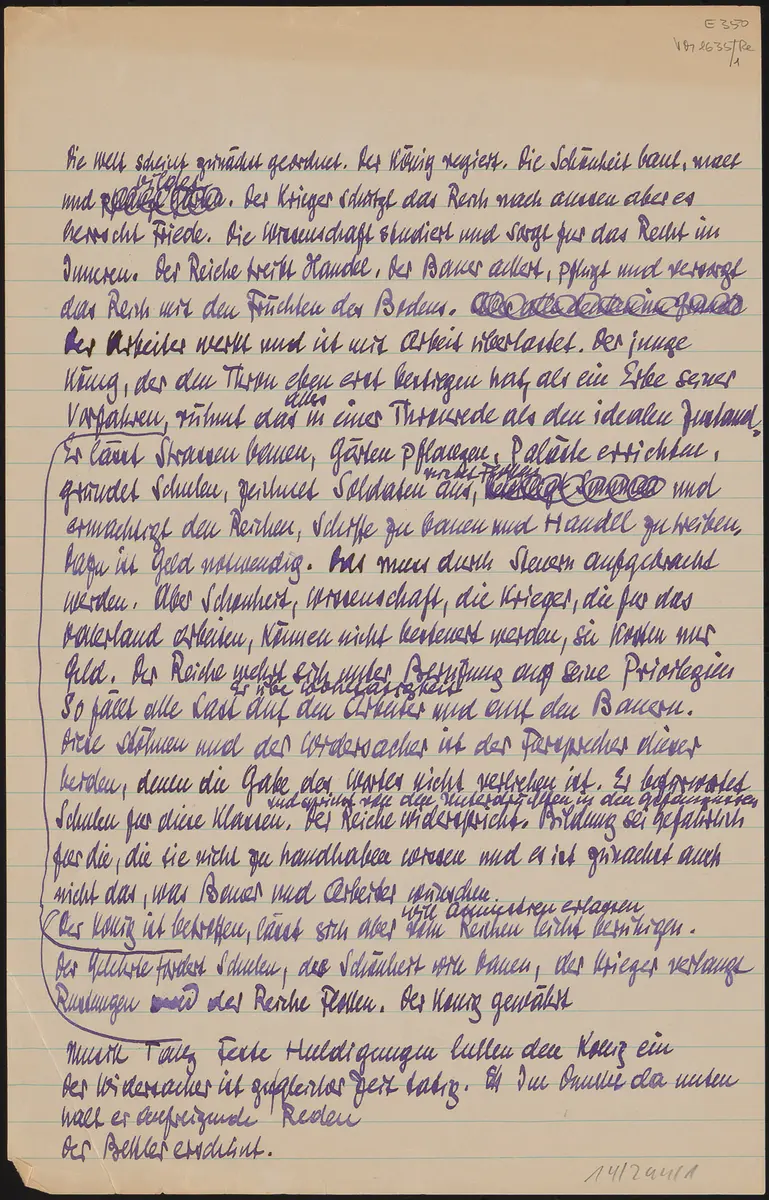 E 350
VM 2635/Re
/1
Die Welt scheint zunächst geordnet. Der König regiert. Die Schönheit baut, malt
bildet
und. Der Krieger schützt das Reich nach aussen aber es
herrscht Friede. Die Wissenschaft studiert und sorgt fur das Recht im
Inneren. Der Reiche treibt Handel. Der Bauer ackert, pflügt und versorgt
das Reich mit den Früchten des Bodens.
Der Arbeiter werkt und ist mit Arbeit überlastet. Der junge
König, der den Thron eben erst bestiegen hat, als ein Erbe seiner
alles
Vorfahren, rühmt das in einer Thronrede als den idealen Zustand.
Er lässt Strassen bauen, Gärten pflanzen, Paläste errichten,
gründet Schulen, zeichnet Soldaten aus, und
ermächtigt den Reichen, Schiffe zu bauen und Handel zu treiben.
Dazu ist Geld notwendig. Das muss durch Steuern aufgebracht
werden. Aber Schönheit, Wissenschaft, die Krieger, die fur das
Vaterland arbeiten, können nicht besteuert werden, sie kosten nur
Geld. Der Reiche wehrt sich unter Berufung auf seine Privilegien
Er übe Wohltätigkeit
So fällt alle Last auf den Arbeiter und auf den Bauern.
Diese stöhnen und der Widersacher ist der Fürsprecher dieser
beiden, denen die Gabe des Wortes nicht verliehen ist. Er befürwortet
und spricht von den Unterdrückten in den Gefängnissen
Schulen fur diese Klassen. Der Reiche widerspricht. Bildung sei gefährlich
fur die, die sie nicht zu handhaben wissen und es ist zunächst auch
nicht das, was Bauer und Arbeiter wünschen
will Amnestieen erlassen
Der König ist betroffen, lässt sich aber vom Reichen leicht beruhigen.
Der Gelehrte fordert Schulen, die Schönheit will bauen, der Krieger verlangt
Rüstungen und der Reiche Flotten. Der König gewährt
Musik Tanz Feste Huldigungen lullen den König ein
Der Widersacher ist zu gleicher Zeit tätig. Im Dunkel da unten
hält er aufreizende Reden
Der Bettler erscheint.
14/244/1